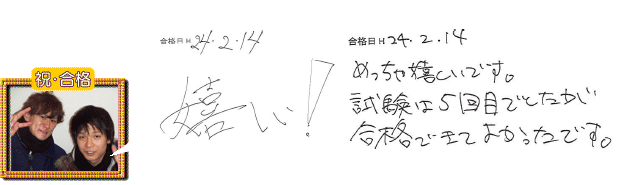 祝・合格
合格日H 24.2.14
嬉しい!
合格日H 24.2.14
めっちゃ嬉しいです。
試験は5回目でしたが
合格できてよかったです。